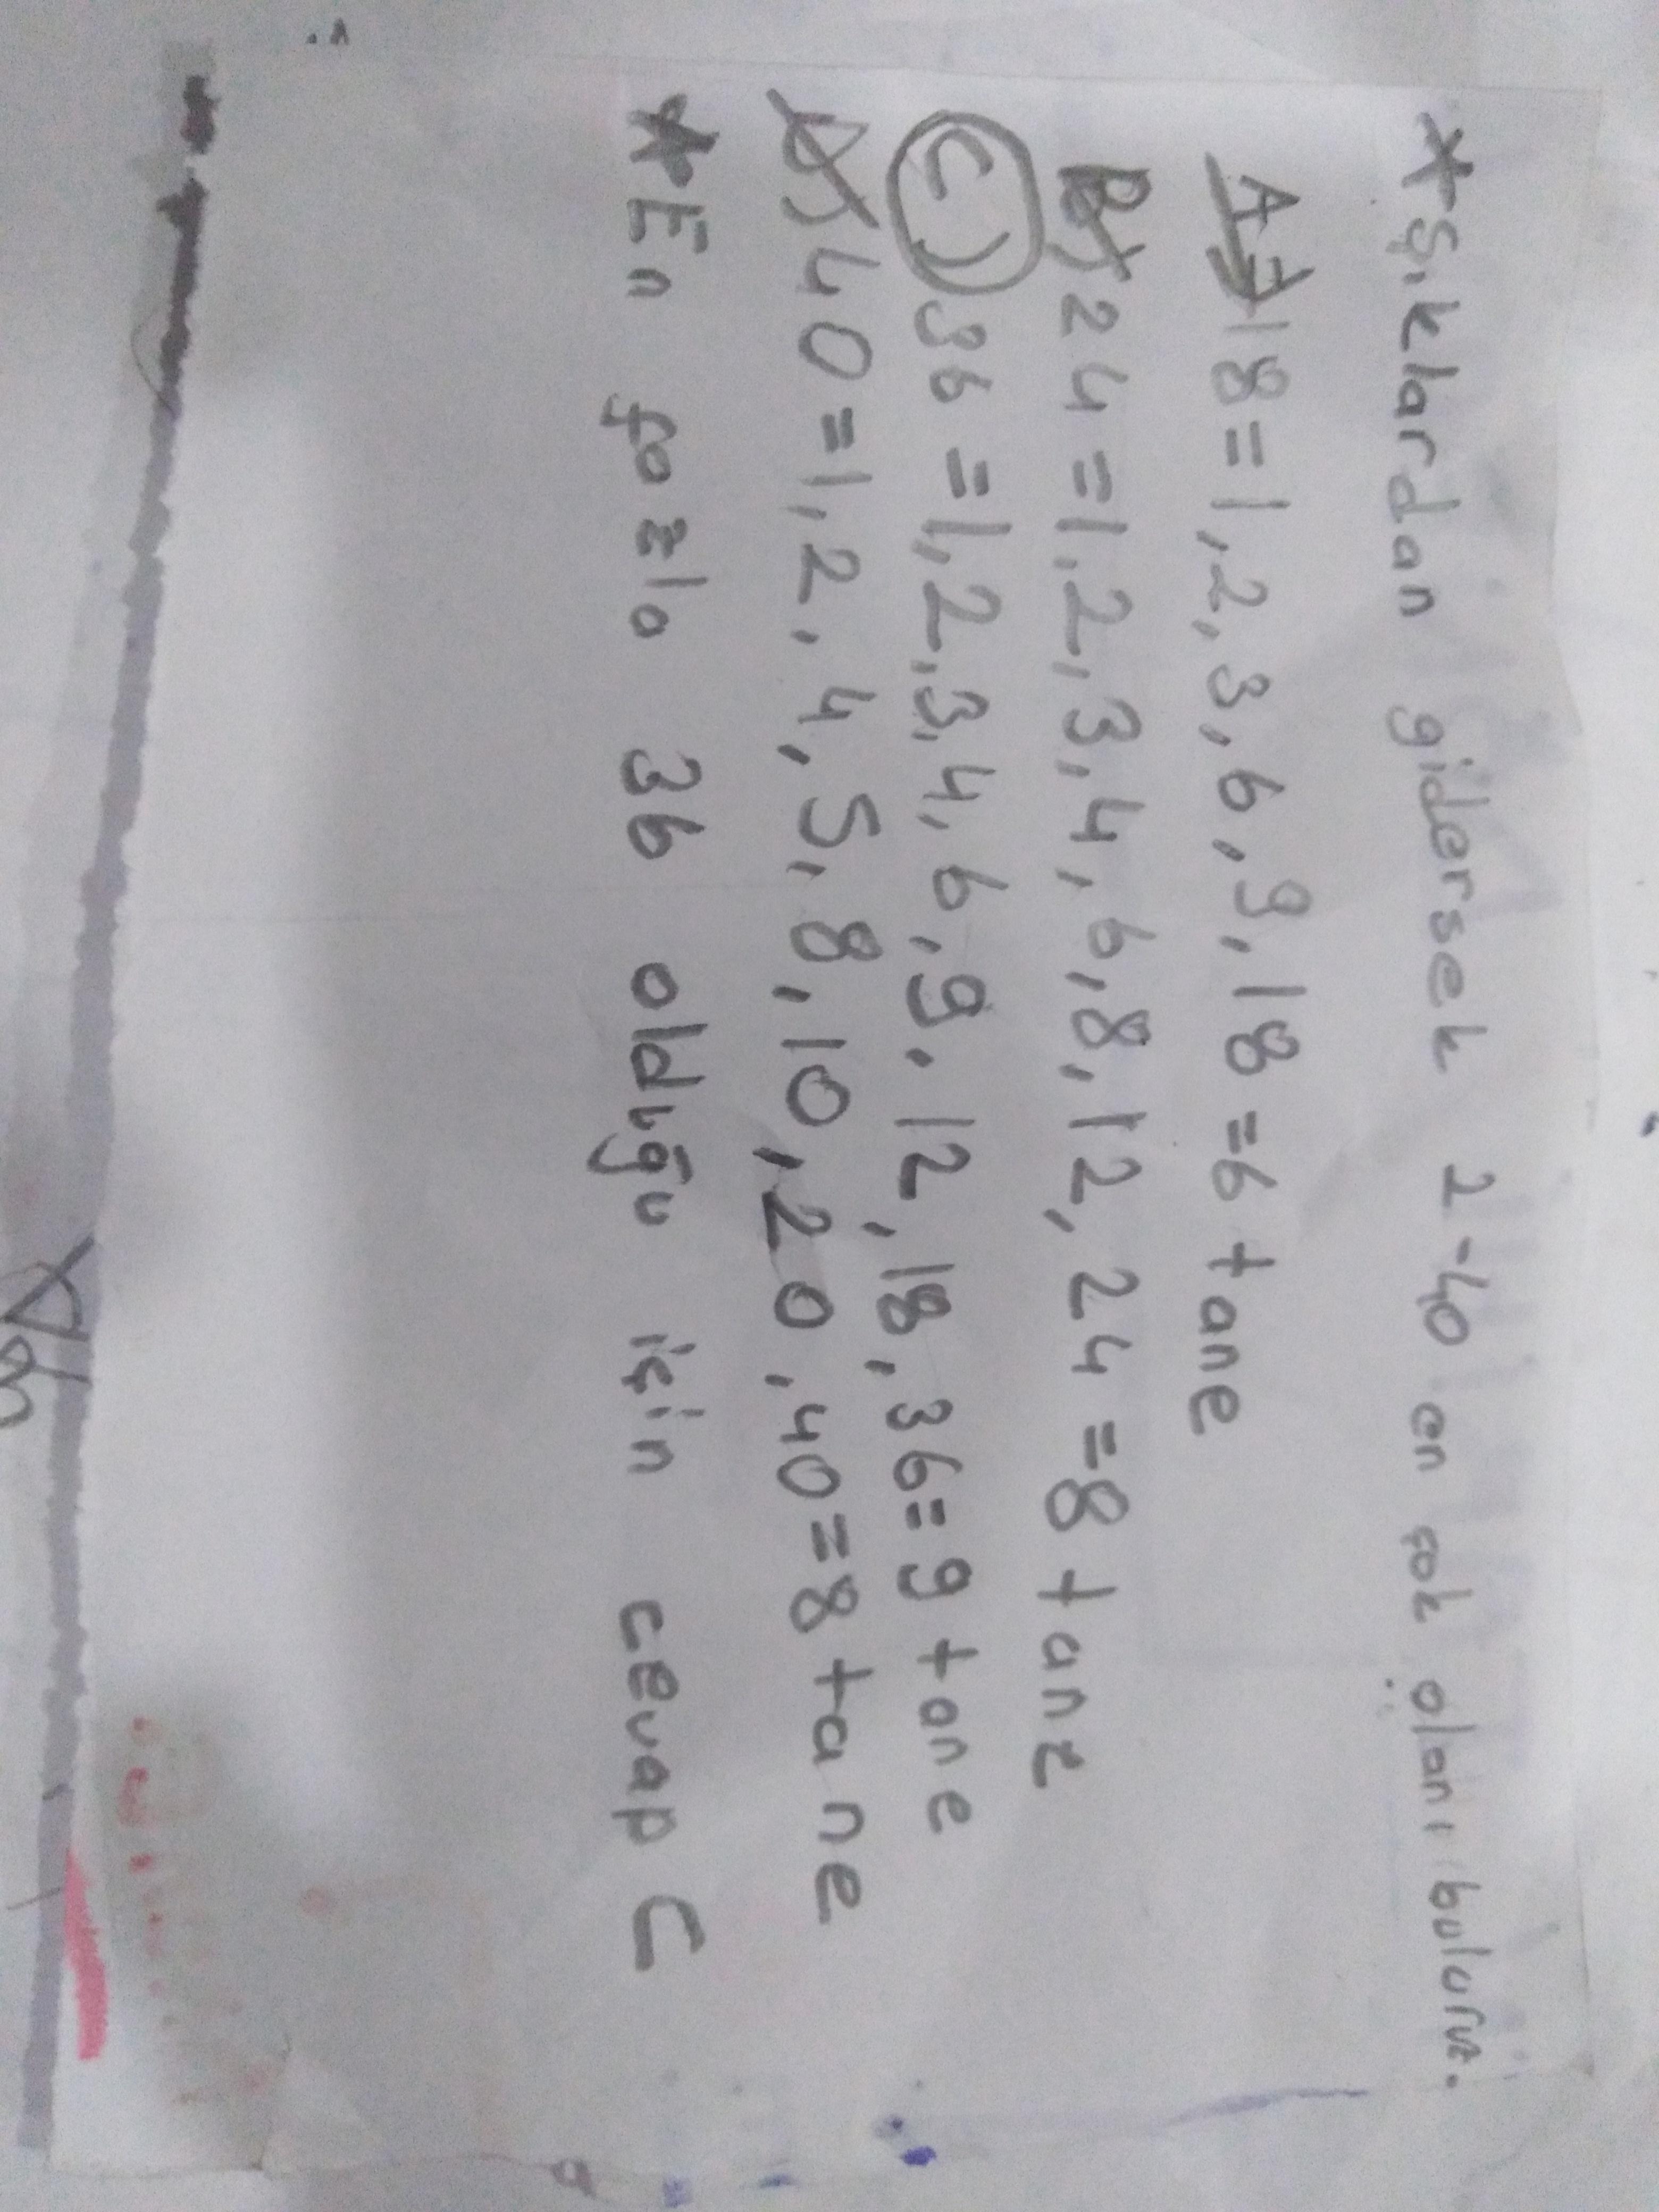 *Şıklardan gidersek 2-40 en çok olanı buluruz.
A) 18=1,2,3,6,9,18=6 tane
B) 24=1,2,3,4,6,8,12,24=8 tane
C) 36=1,2,3,4,6,9,12,18,36=9 tane
D) 40=1,2,4,5,8,10,20,40=8 tane
*En fazla 36 olduğu için cevap C